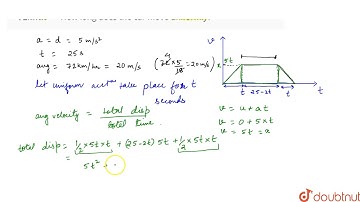 a = d = 5 m/s²
t = 25s
avg = 72 km/hr = 20 m/s (72 × 5/18 = 20 m/s)
let uniform accⁿ take place for t
seconds
avg velocity = total disp / total time.
total disp = 1/2 × 5t × t + (25-2t) 5t + 1/2 × 5t × t
=
5t² +
v
5t
t 25-2t t
t
v = u + at
v = 0 + 5 × t
v = 5t = a
doubtnut